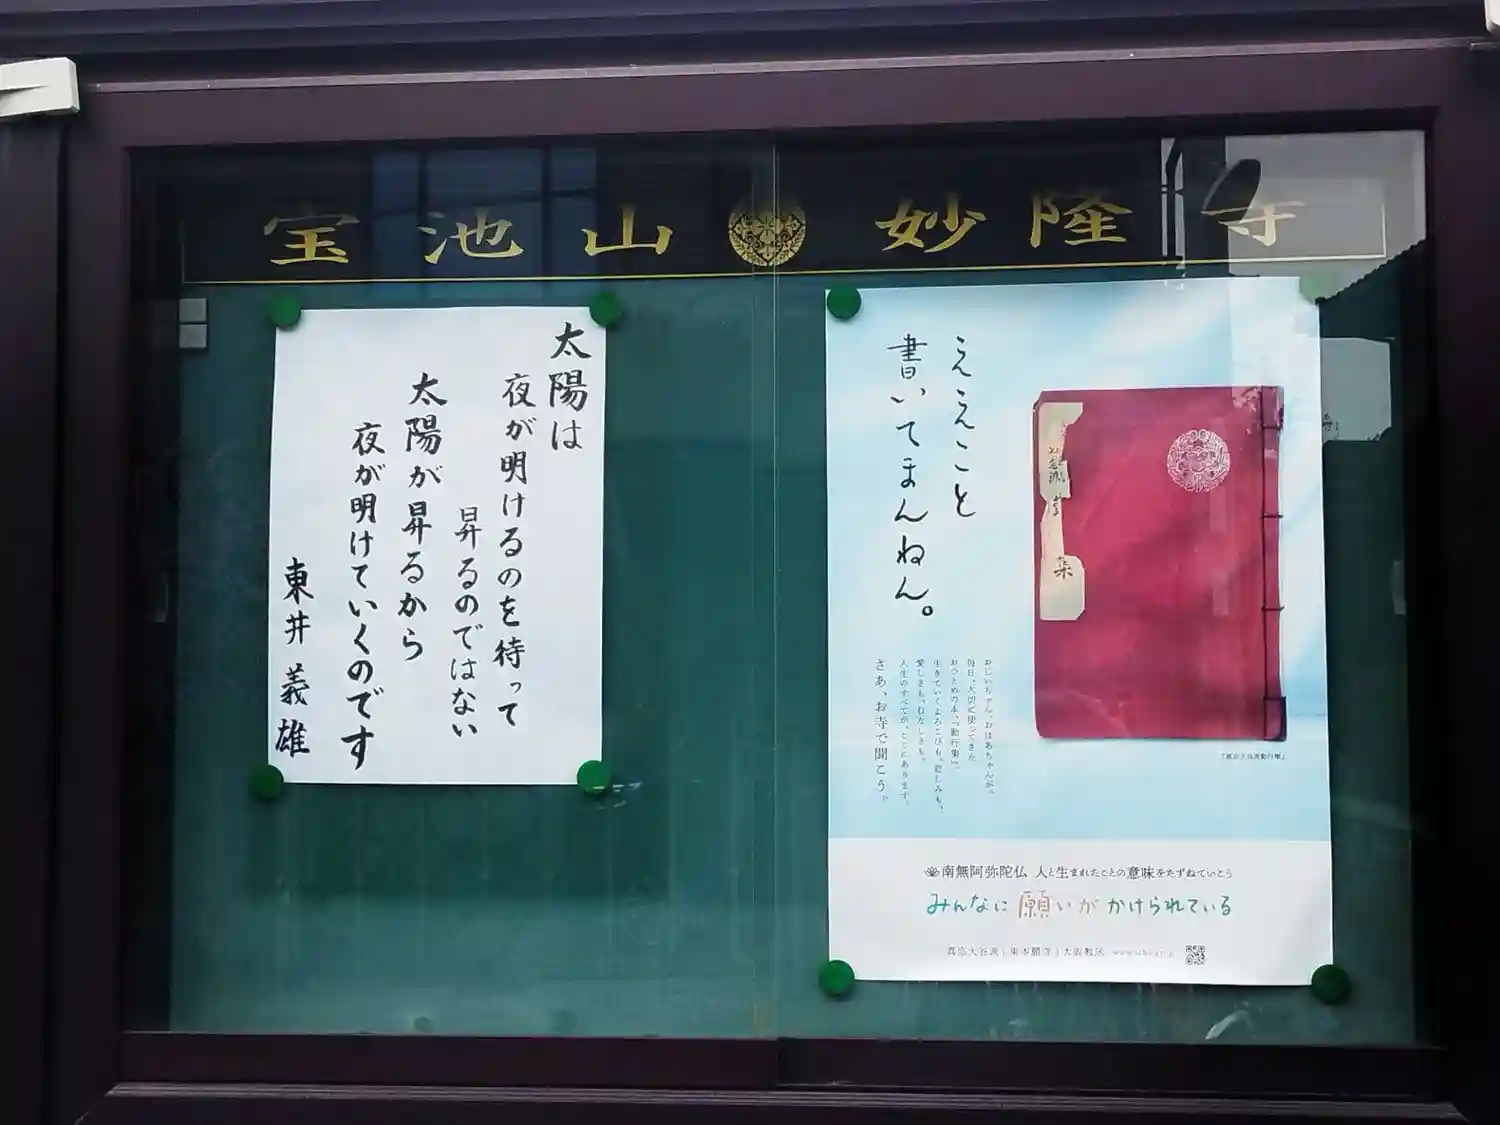 宝池山 妙隆寺
太陽は
夜が明けるのを待って
昇るのではない
太陽が昇るから
夜が明けていくのです
東井義雄
ええこと
書いてまんねん。
おじいちゃん、おばあちゃんが、
毎日、大切に使ってきた
おつとめの本、『勤行集』。
生きていくよろこびも、悲しみも、
愛しさも、むなしさも。
人生のすべてが、ここにあります。
さあ、お寺で聞こう。
『真宗大谷派勤行集』
南無阿弥陀仏 人と生まれたことの意味をたずねていこう
みんなに願いがかけられている
真宗大谷派(東本願寺)大阪教区